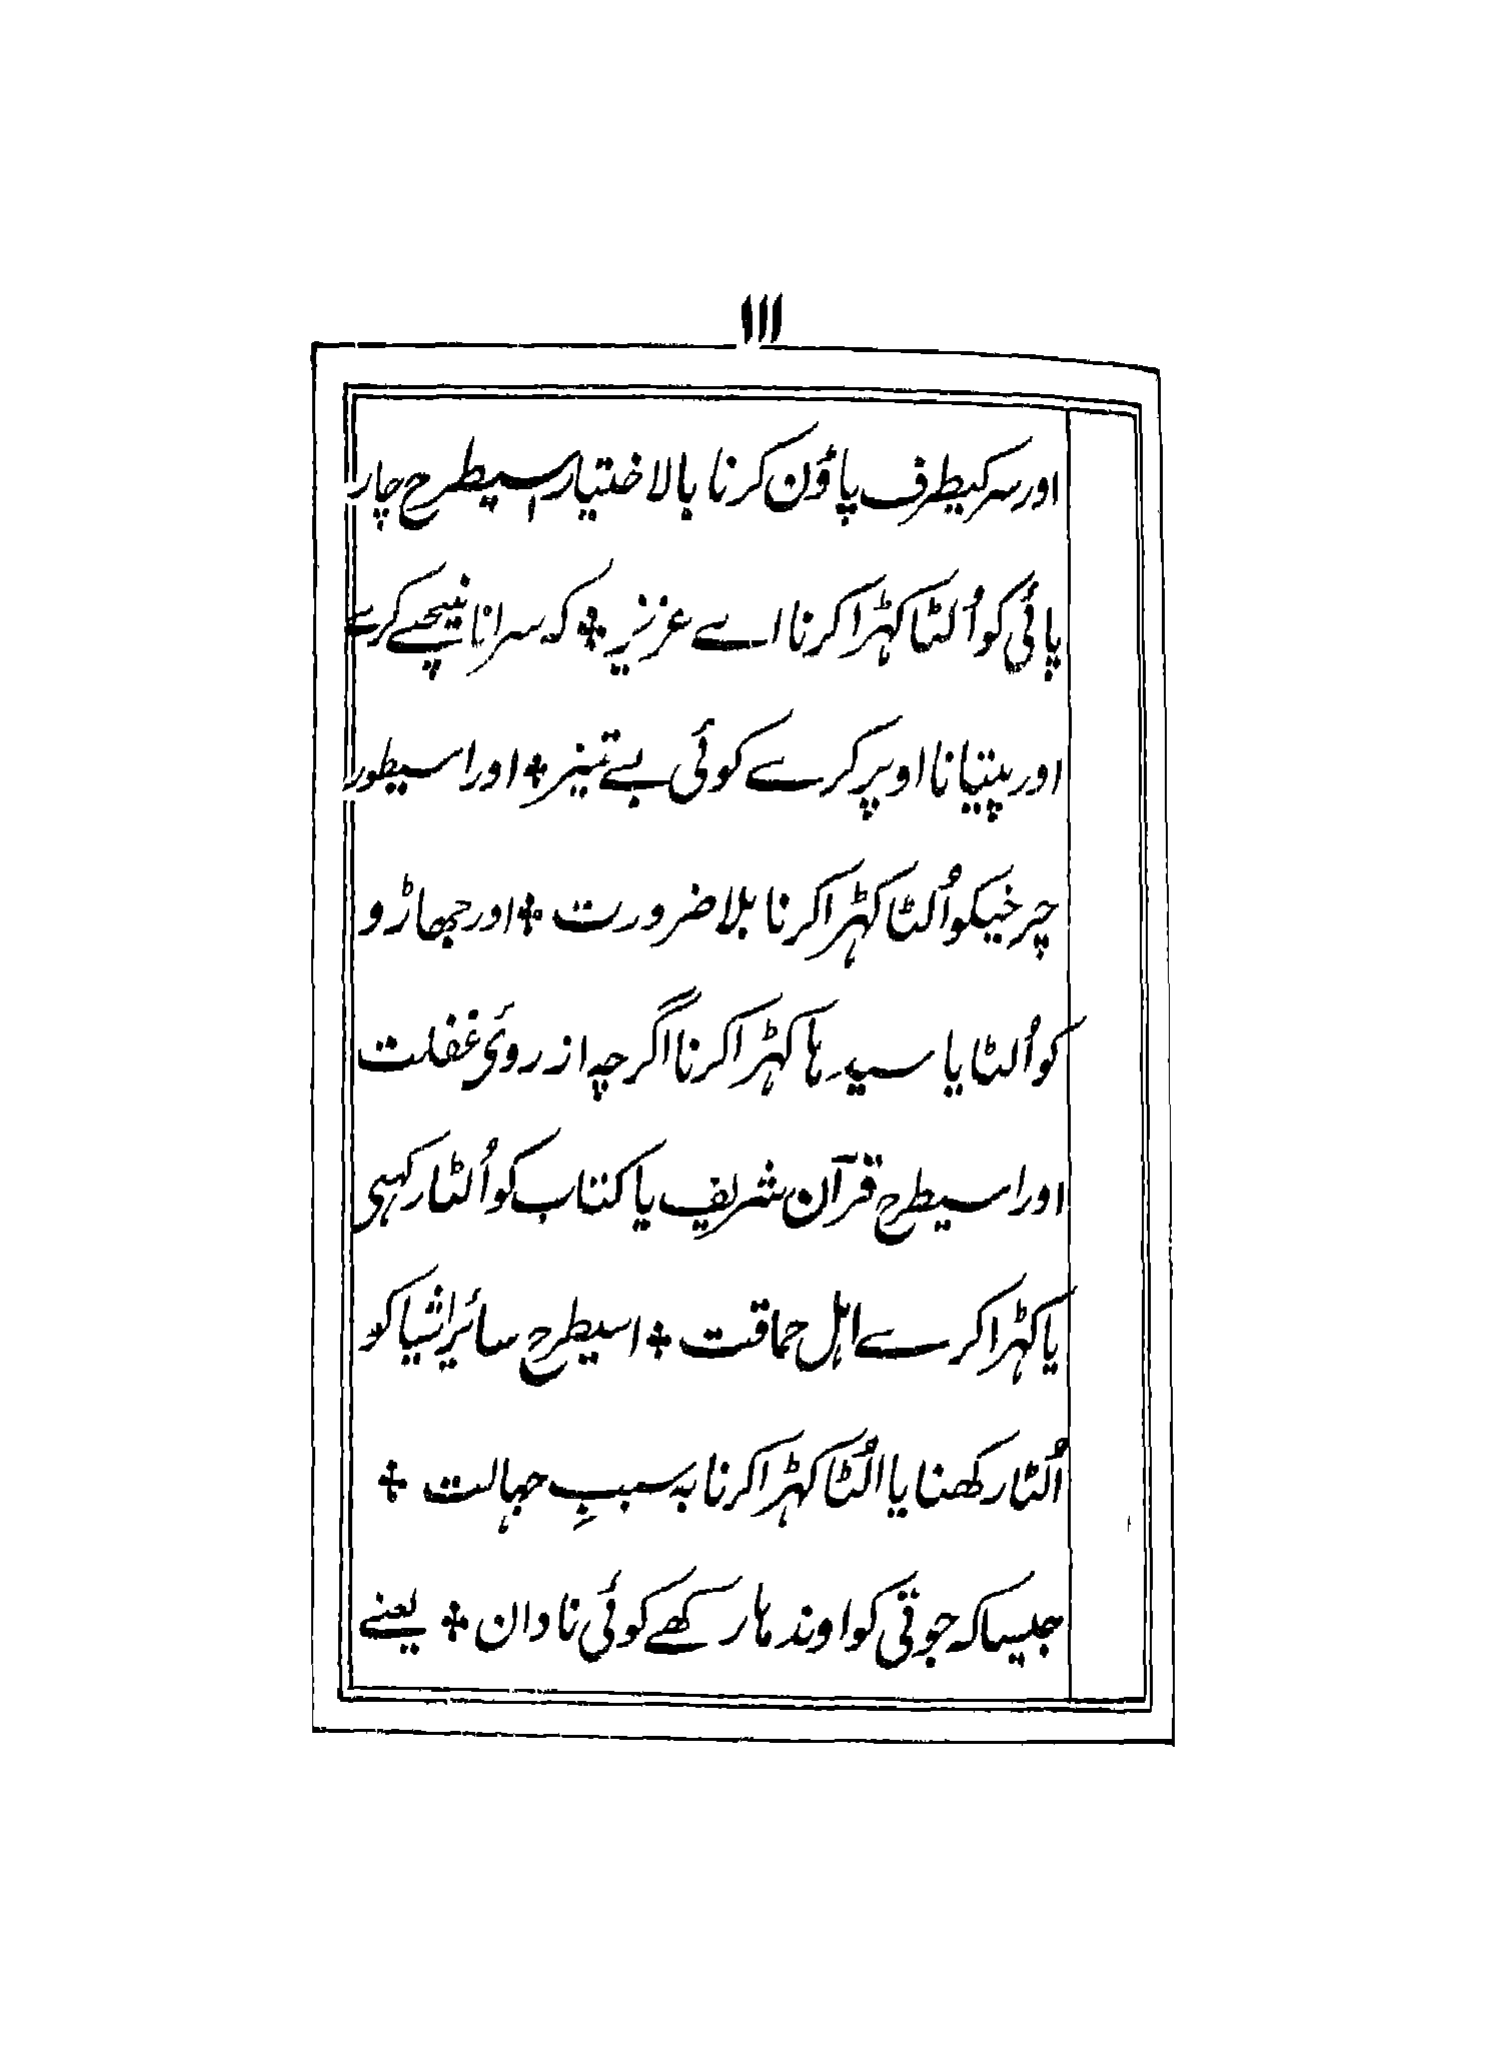 ۱۱۱
اور سر کیطرف پاؤن کرنا بالاختیار اسیطرح چار
پائی کو اُلٹا کہڑا کرنا اے عزیز ÷ کہ سرانا نیچے کرے
اور پینتیانا اوپر کرے کوئی بے تمیز ÷ اور اسیطور
چرخیکو اُلٹا کہڑا کرنا بلا ضرورت ÷ اور جھاڑو
کو اُلٹا یا سیدہا کہڑا کرنا اگرچہ از روئ غفلت
اور اسیطرح قرآن شریف یا کتاب کو اُلٹا رکہی
یا کہڑا کرے اہل حماقت ÷ اسیطرح سائر اشیا کو
اُلٹا رکھنا یا اُلٹا کہڑا کرنا بہ سببِ جہالت ÷
جیسا کہ جوتی کو اوندہا رکھے کوئی نادان ÷ یعنے